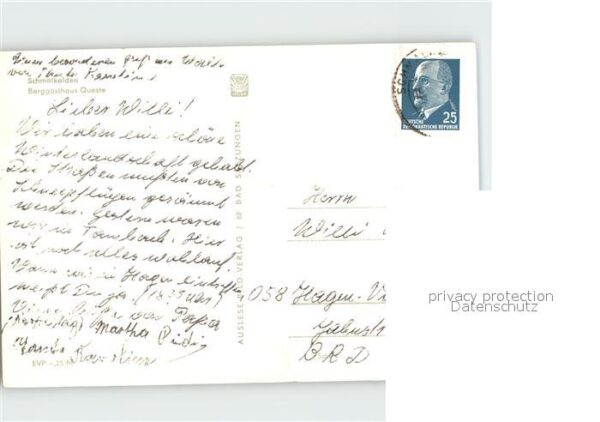 Einen besonderen Gruß an Wald
von Tante
Schmalkalden
Berggasthaus Queste
Lieber Willi!
Wir haben eine schöne
Winterlandschaft gehabt.
Die Straßen mußten von
Schneepflügen geräumt
werden. Gestern waren
wir in Tambach. Hier
ist noch alles wohlauf.
Wann wir in Hagen eintreffen
weißt Du ja (1839 Uhr)
Viele Grüße von Papa
Martha
EVP
AUSLESE-BILD-VERLAG / 62 BAD SALZUNGEN
DEUTSCHE
DEMOKRATISCHE REPUBLIK
25
Herrn
Willi
058 Hagen-V
BRD
privacy protection
Datenschutz